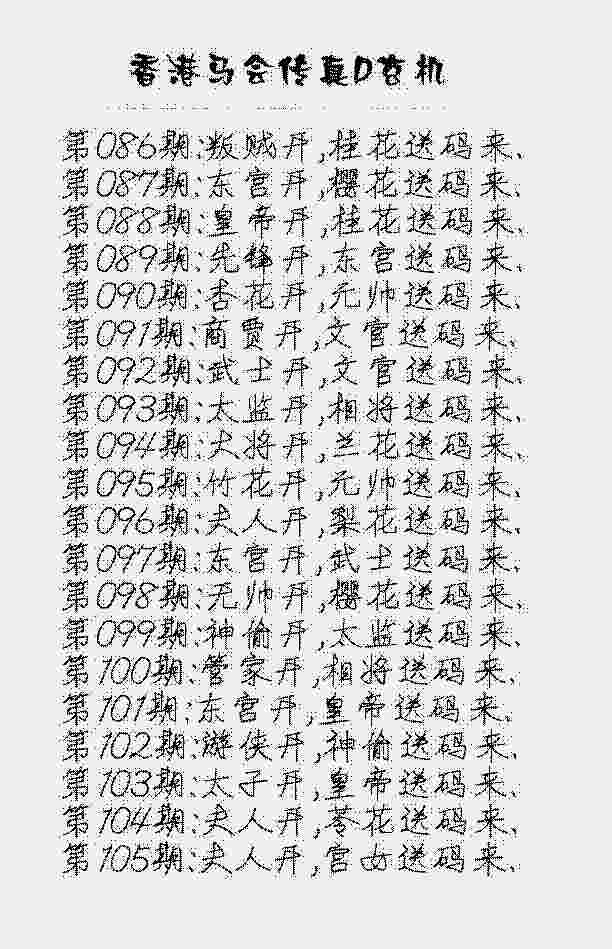 香港马会传真D玄机
第086期:叛贼开,桂花送码来、
第087期:东宫开,樱花送码来、
第088期:皇帝开,桂花送码来、
第089期:先锋开,东宫送码来、
第090期:杏花开,元帅送码来、
第091期:商贾开,文官送码来、
第092期:武士开,文官送码来、
第093期:太监开,相将送码来、
第094期:大将开,兰花送码来、
第095期:竹花开,元帅送码来、
第096期:夫人开,梨花送码来、
第097期:东宫开,武士送码来、
第098期:元帅开,樱花送码来、
第099期:神偷开,太监送码来、
第100期:管家开,相将送码来、
第101期:东宫开,皇帝送码来、
第102期:游侠开,神偷送码来、
第103期:太子开,皇帝送码来、
第104期:夫人开,苓花送码来、
第105期:夫人开,宫女送码来、